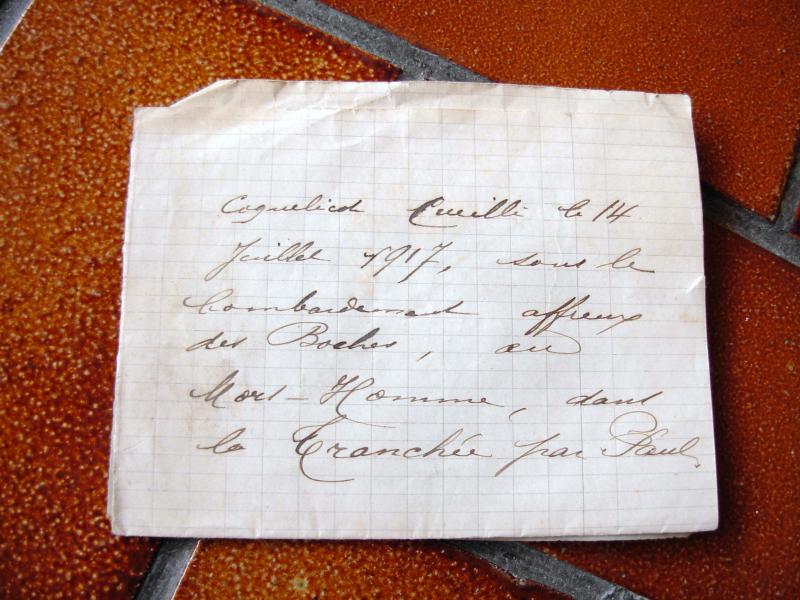 Coquelicot Cueilli le 14
Juillet 1917, sous le
bombardement affreux
des Boches, au
Mort-Homme, dans
la Tranchée par Paul.